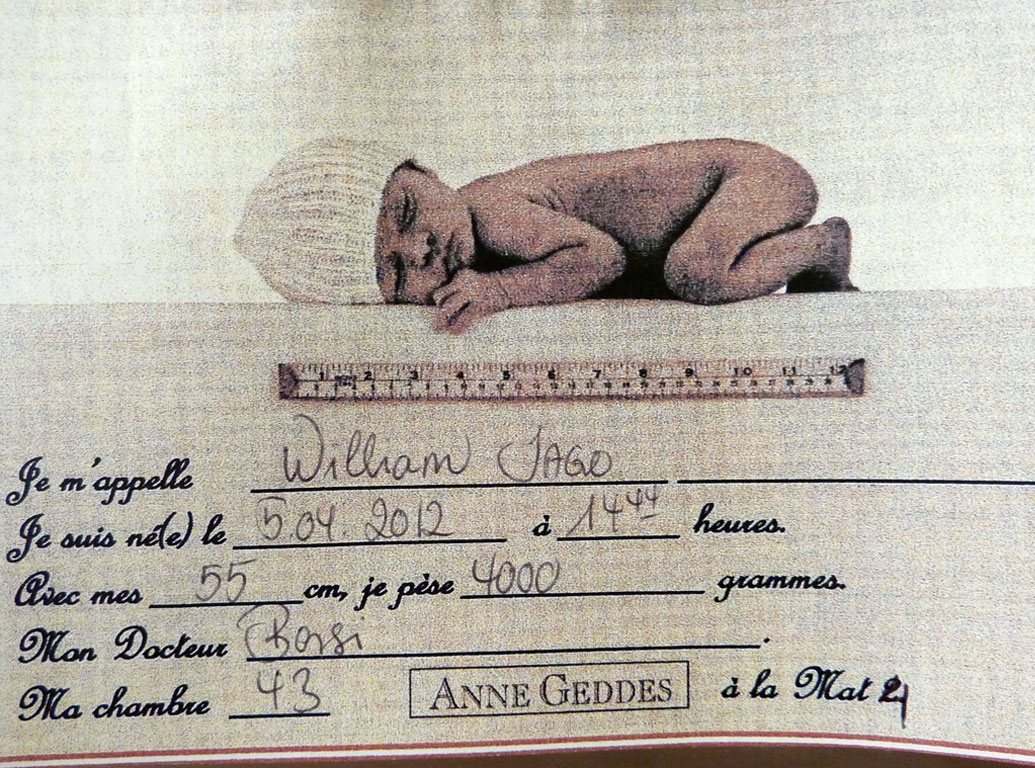 1 2 3 4 5 6 7 8 9 10 11 12
Je m'appelle William JAGO
Je suis né(e) le 5.04.2012 à 14 44 heures.
Avec mes 55 cm, je pèse 4000 grammes.
Mon Docteur Borsi.
Ma chambre 43 ANNE GEDDES à la Mat 4